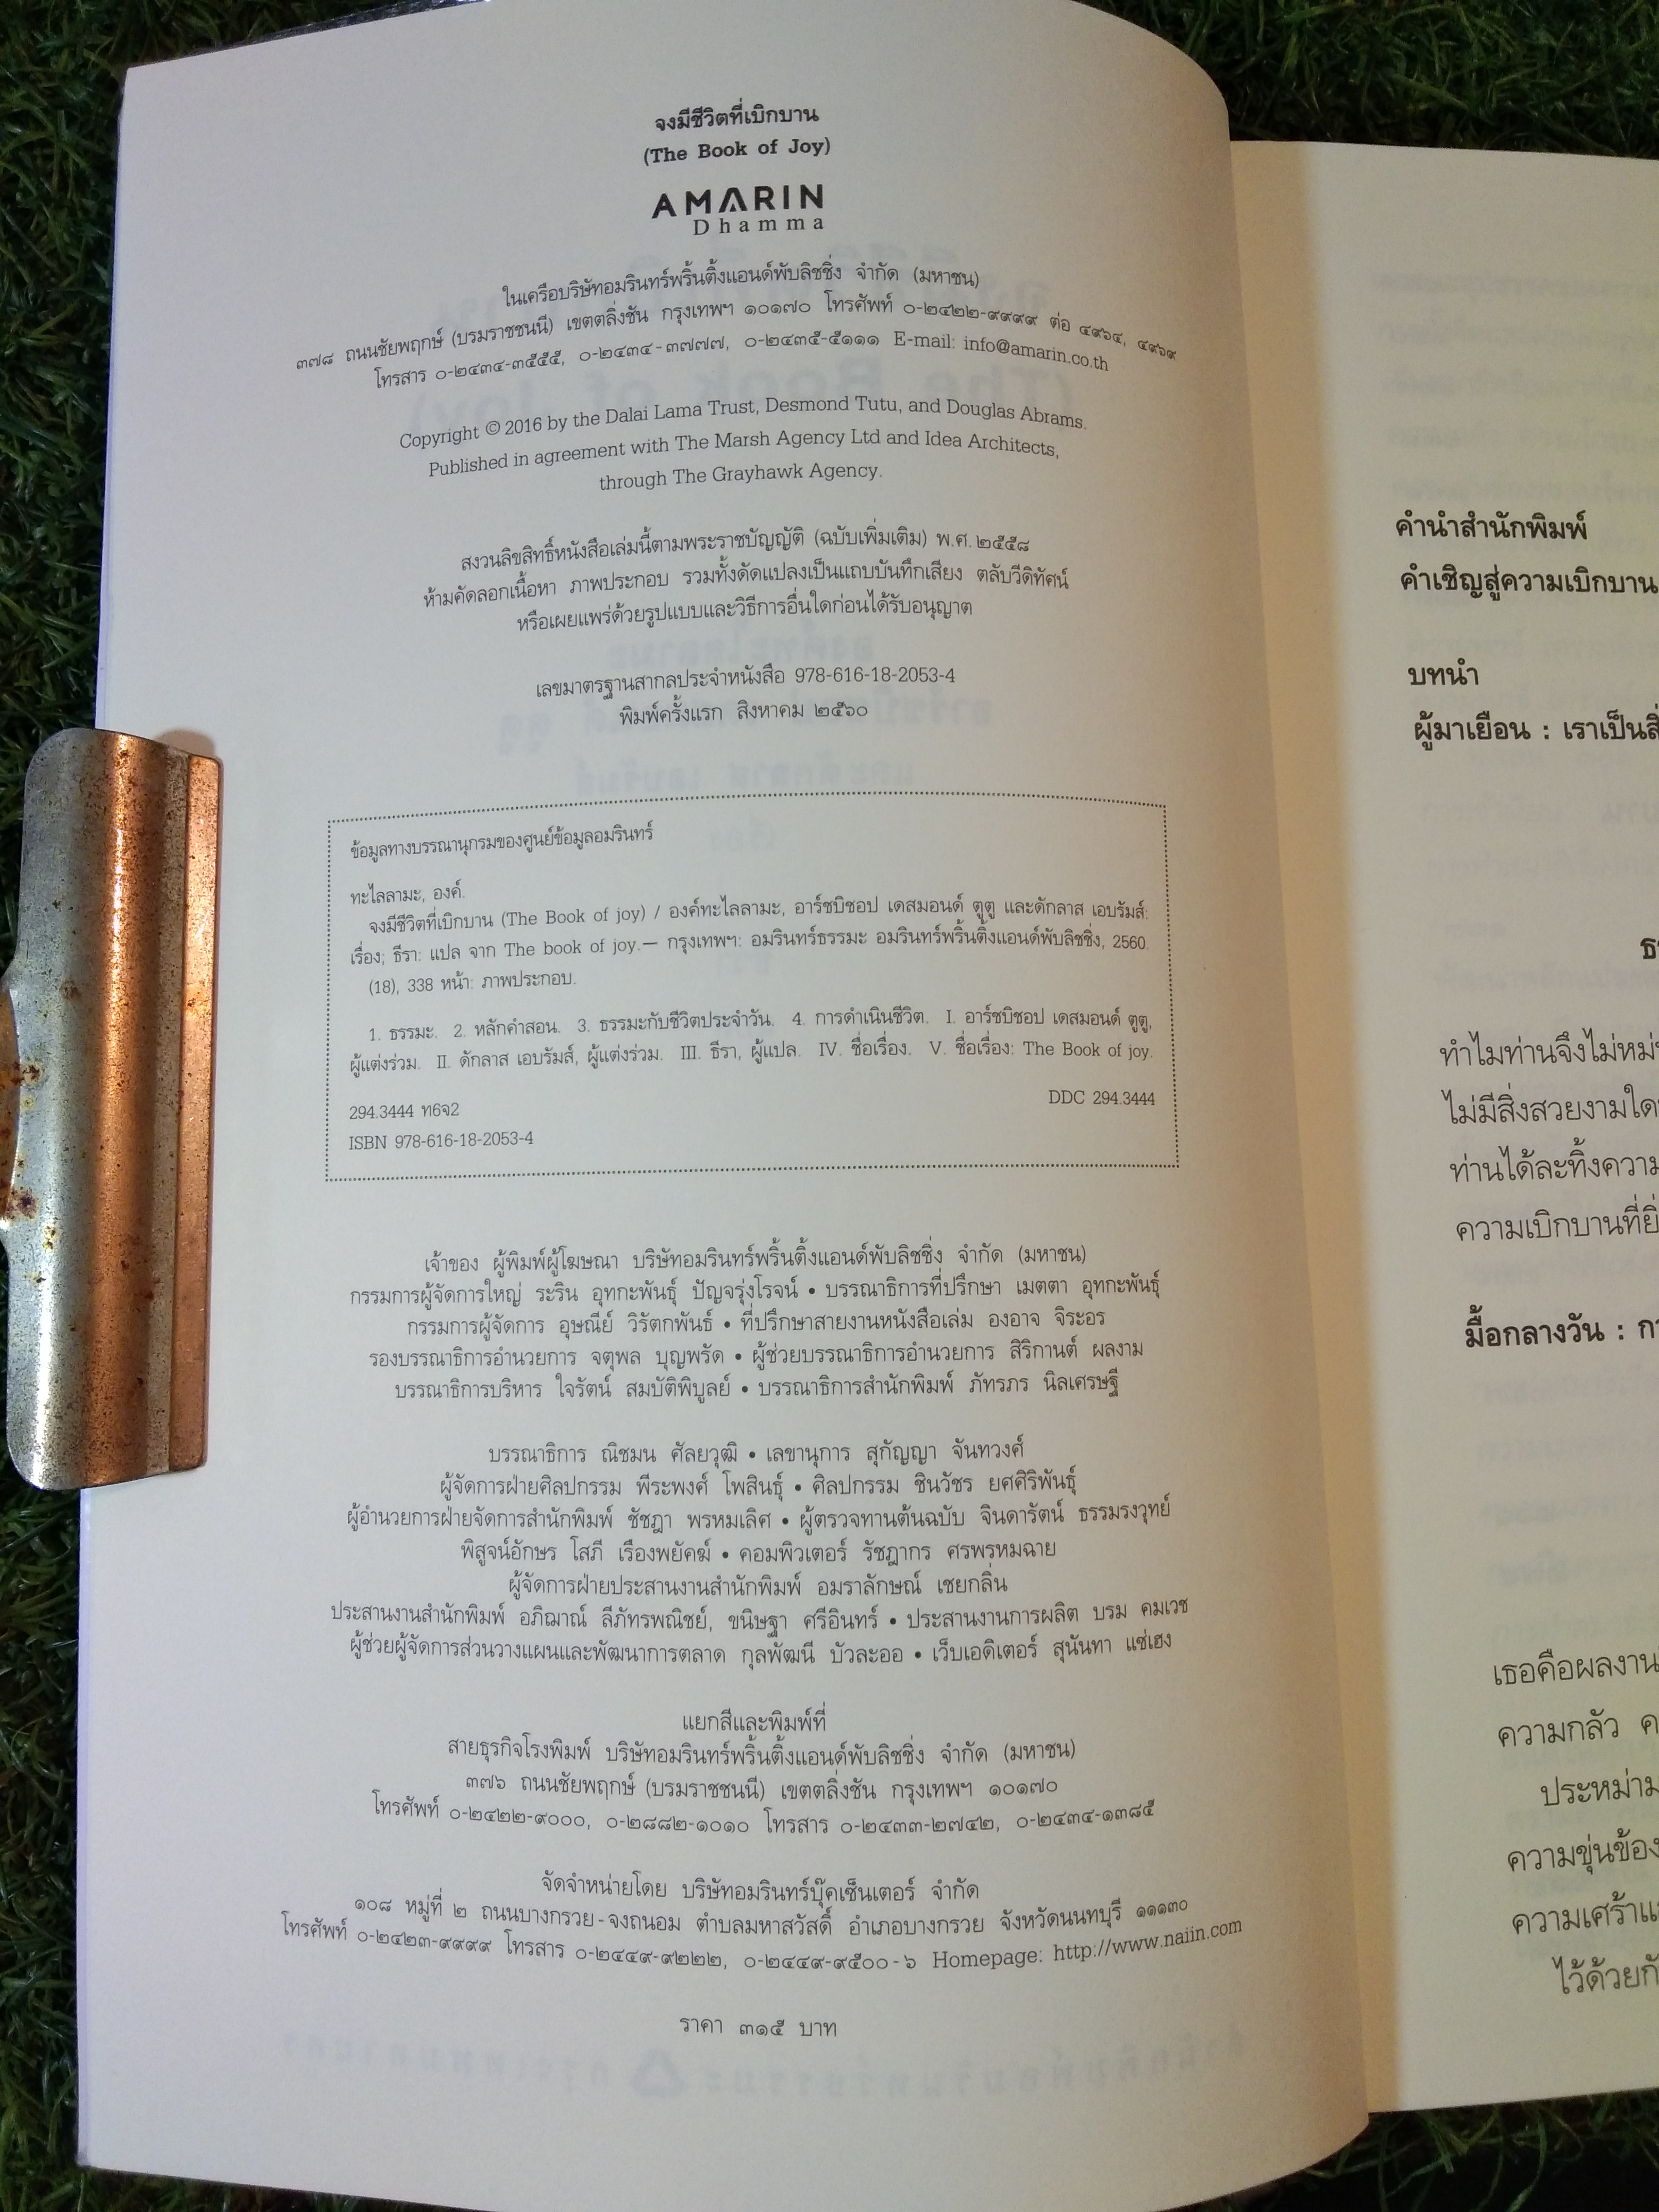 จงมีชีวิตที่เบิกบาน
(The Book of Joy)
AMARIN
Dhamma
ในเครือบริษัทอมรินทร์พริ้นติ้งแอนด์พับลิชชิ่ง จำกัด (มหาชน)
๓๗๘ ถนนชัยพฤกษ์ (บรมราชชนนี) เขตตลิ่งชัน กรุงเทพฯ ๑๐๑๗๐ โทรศัพท์ ๐-๒๔๒๒-๙๙๙๙ ต่อ ๔๙๖๔, ๔๙๖๙
โทรสาร ๐-๒๔๓๔-๓๕๕๕, ๐-๒๔๓๔-๓๗๗๗, ๐-๒๔๓๕-๕๑๑๑ E-mail: info@amarin.co.th
Copyright © 2016 by the Dalai Lama Trust, Desmond Tutu, and Douglas Abrams.
Published in agreement with The Marsh Agency Ltd and Idea Architects,
through The Grayhawk Agency.
สงวนลิขสิทธิ์หนังสือเล่มนี้ตามพระราชบัญญัติ (ฉบับเพิ่มเติม) พ.ศ. ๒๕๕๘
ห้ามคัดลอกเนื้อหา ภาพประกอบ รวมทั้งดัดแปลงเป็นแถบบันทึกเสียง ตลับวีดิทัศน์
หรือเผยแพร่ด้วยรูปแบบและวิธีการอื่นใดก่อนได้รับอนุญาต
เลขมาตรฐานสากลประจำหนังสือ 978-616-18-2053-4
พิมพ์ครั้งแรก สิงหาคม ๒๕๖๐
ข้อมูลทางบรรณานุกรมของศูนย์ข้อมูลอมรินทร์
ทะไลลามะ, องค์.
จงมีชีวิตที่เบิกบาน (The Book of joy) / องค์ทะไลลามะ, อาร์ชบิชอป เดสมอนด์ ตูตู และดักลาส เอบรัมส์:
เรื่อง; ธีรา: แปล จาก The book of joy.— กรุงเทพฯ: อมรินทร์ธรรมะ อมรินทร์พริ้นติ้งแอนด์พับลิชชิ่ง, 2560.
(18), 338 หน้า: ภาพประกอบ.
1. ธรรมะ. 2. หลักคำสอน. 3. ธรรมะกับชีวิตประจำวัน. 4. การดำเนินชีวิต. I. อาร์ชบิชอป เดสมอนด์ ตูตู,
ผู้แต่งร่วม. II. ดักลาส เอบรัมส์, ผู้แต่งร่วม. III. ธีรา, ผู้แปล. IV. ชื่อเรื่อง. V. ชื่อเรื่อง: The Book of joy.
294.3444 ท6จ2 DDC 294.3444
ISBN 978-616-18-2053-4
เจ้าของ ผู้พิมพ์ผู้โฆษณา บริษัทอมรินทร์พริ้นติ้งแอนด์พับลิชชิ่ง จำกัด (มหาชน)
กรรมการผู้จัดการใหญ่ ระริน อุทกะพันธุ์ ปัญจรุ่งโรจน์ • บรรณาธิการที่ปรึกษา เมตตา อุทกะพันธุ์
กรรมการผู้จัดการ อุษณีย์ วิรัตกพันธ์ • ที่ปรึกษาสายงานหนังสือเล่ม องอาจ จิระอร
รองบรรณาธิการอำนวยการ จตุพล บุญพรัด • ผู้ช่วยบรรณาธิการอำนวยการ สิริกานต์ ผลงาม
บรรณาธิการบริหาร ใจรัตน์ สมบัติพิบูลย์ • บรรณาธิการสำนักพิมพ์ ภัทรภร นิลเศรษฐี
บรรณาธิการ ณิชมน ศัลยวุฒิ • เลขานุการ สุกัญญา จันทวงศ์
ผู้จัดการฝ่ายศิลปกรรม พีระพงศ์ โพสินธุ์ • ศิลปกรรม ชินวัชร ยศศิริพันธุ์
ผู้อำนวยการฝ่ายจัดการสำนักพิมพ์ ชัชฎา พรหมเลิศ • ผู้ตรวจทานต้นฉบับ จินดารัตน์ ธรรมรงวุทย์
พิสูจน์อักษร โสภี เรืองพยัคฆ์ • คอมพิวเตอร์ รัชฎากร ศรพรหมฉาย
ผู้จัดการฝ่ายประสานงานสำนักพิมพ์ อมราลักษณ์ เชยกลิ่น
ประสานงานสำนักพิมพ์ อภิฌาณ์ ลีภัทรพณิชย์, ขนิษฐา ศรีอินทร์ • ประสานงานการผลิต บรม คมเวช
ผู้ช่วยผู้จัดการส่วนวางแผนและพัฒนาการตลาด กุลพัฒนี บัวละออ • เว็บเอดิเตอร์ สุนันทา แซ่เฮง
แยกสีและพิมพ์ที่
สายธุรกิจโรงพิมพ์ บริษัทอมรินทร์พริ้นติ้งแอนด์พับลิชชิ่ง จำกัด (มหาชน)
๓๗๖ ถนนชัยพฤกษ์ (บรมราชชนนี) เขตตลิ่งชัน กรุงเทพฯ ๑๐๑๗๐
โทรศัพท์ ๐-๒๔๒๒-๙๐๐๐, ๐-๒๘๘๒-๑๐๑๐ โทรสาร ๐-๒๔๓๓-๒๗๔๒, ๐-๒๔๓๔-๑๓๘๕
จัดจำหน่ายโดย บริษัทอมรินทร์บุ๊คเซ็นเตอร์ จำกัด
๑๐๘ หมู่ที่ ๒ ถนนบางกรวย-จงถนอม ตำบลมหาสวัสดิ์ อำเภอบางกรวย จังหวัดนนทบุรี ๑๑๑๓๐
โทรศัพท์ ๐-๒๔๒๓-๙๙๙๙ โทรสาร ๐-๒๔๔๙-๙๒๒๒, ๐-๒๔๔๙-๙๕๐๐-๖ Homepage: http://www.naiin.com
ราคา ๓๑๕ บาท
คำนำสำนักพิมพ์
คำเชิญสู่ความเบิกบาน
บทนำ
ผู้มาเยือน : เราเป็นสิ่
ทำไมท่านจึงไม่หม่
ไม่มีสิ่งสวยงามใด
ท่านได้ละทิ้งความ
ความเบิกบานที่ยิ่
มื้อกลางวัน : กา
เธอคือผลงาน
ความกลัว ค
ประหม่าม
ความขุ่นข้อง
ความเศร้าแ
ไว้ด้วยกั